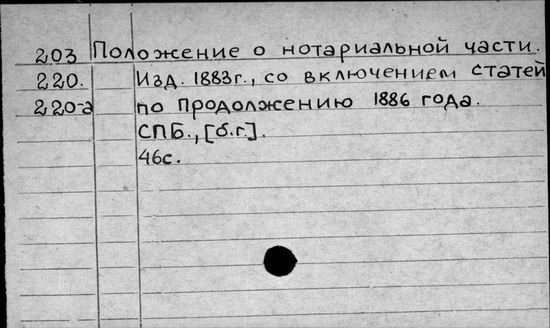 203 Положение о нотариальной части.
220. Изд. 1883г., со включением статей
220-а по продолжению 1886 года.
СПБ., [б.г.].
46с.